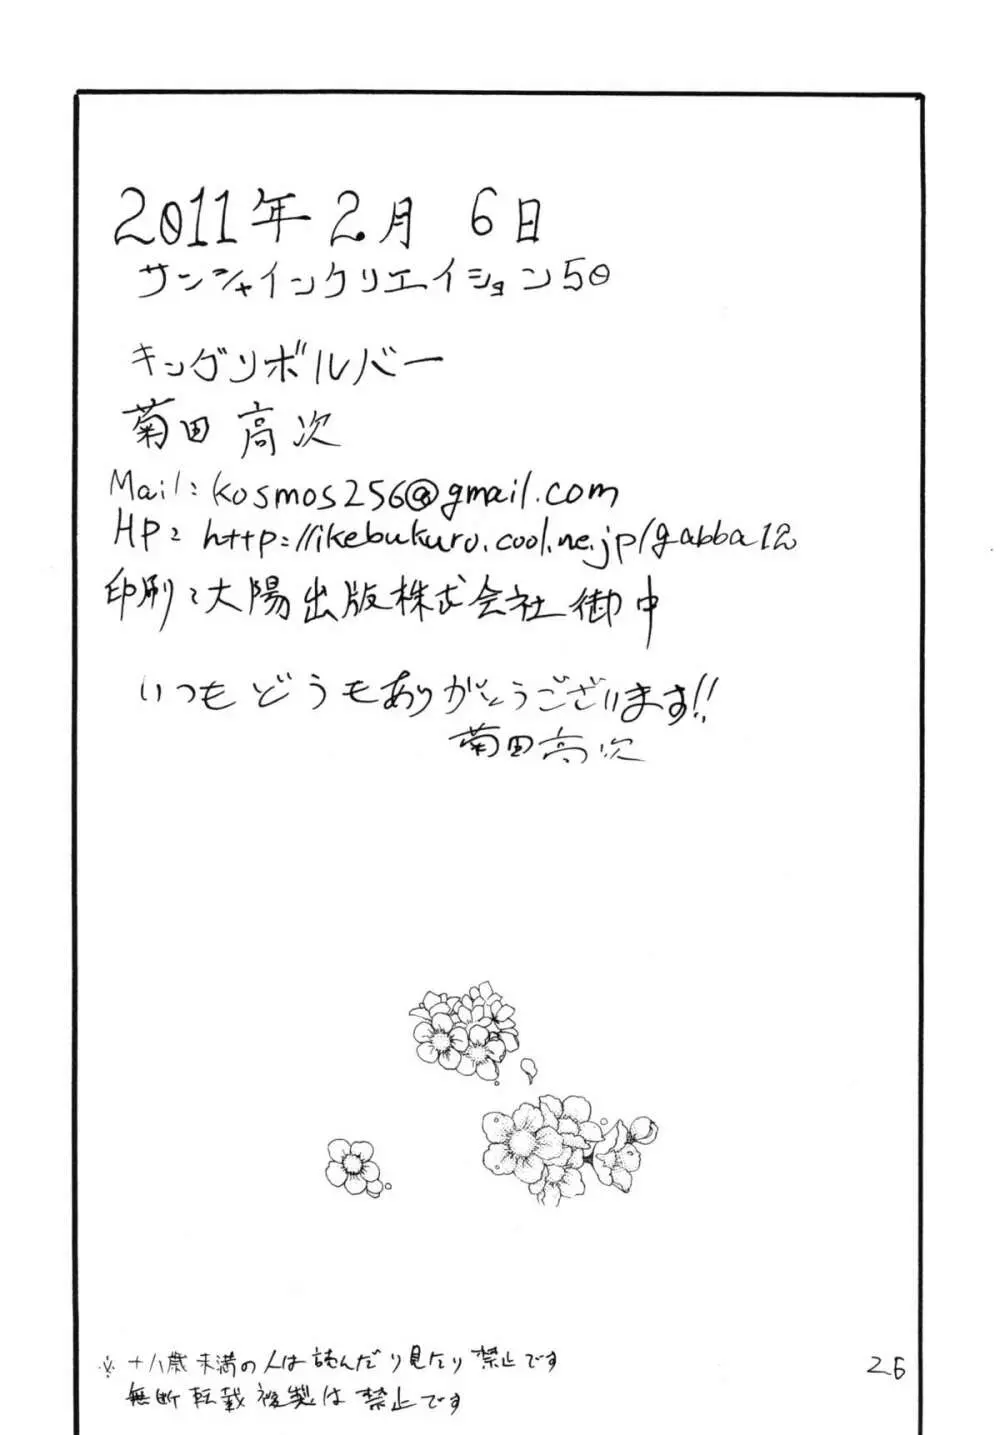 2011年2月6日
サンシャインクリエイション50
キングリボルバー
菊田 高次
Mail: kosmos256@gmail.com
HP: http://ikebukuro.cool.ne.jp/gabba12
印刷:大陽出版株式会社御中
いつもどうもありがとうございます!!
菊田高次
※十八歳未満の人は読んだり見たり禁止です
無断転載複製は禁止です
26